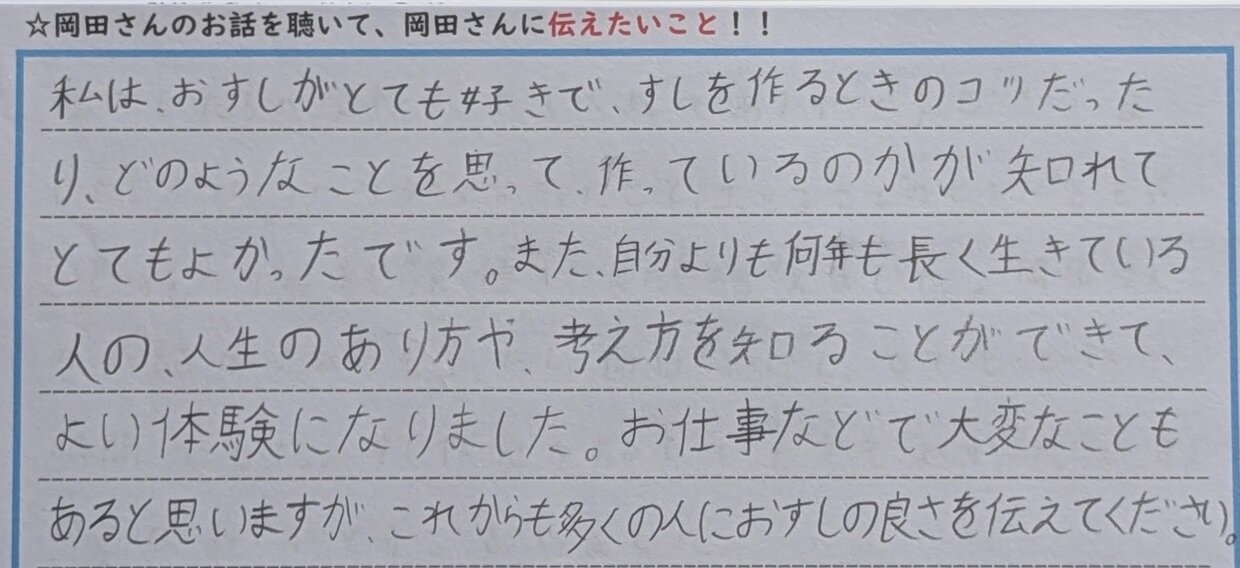 ☆岡田さんのお話を聴いて、岡田さんに伝えたいこと！！
私は、おすしがとても好きで、すしを作るときのコツだった
り、どのようなことを思って、作っているのかが知れて
とてもよかったです。また、自分よりも何年も長く生きている
人の、人生のあり方や、考え方を知ることができて、
よい体験になりました。お仕事などで大変なことも
あると思いますが、これからも多くの人におすしの良さを伝えてください。